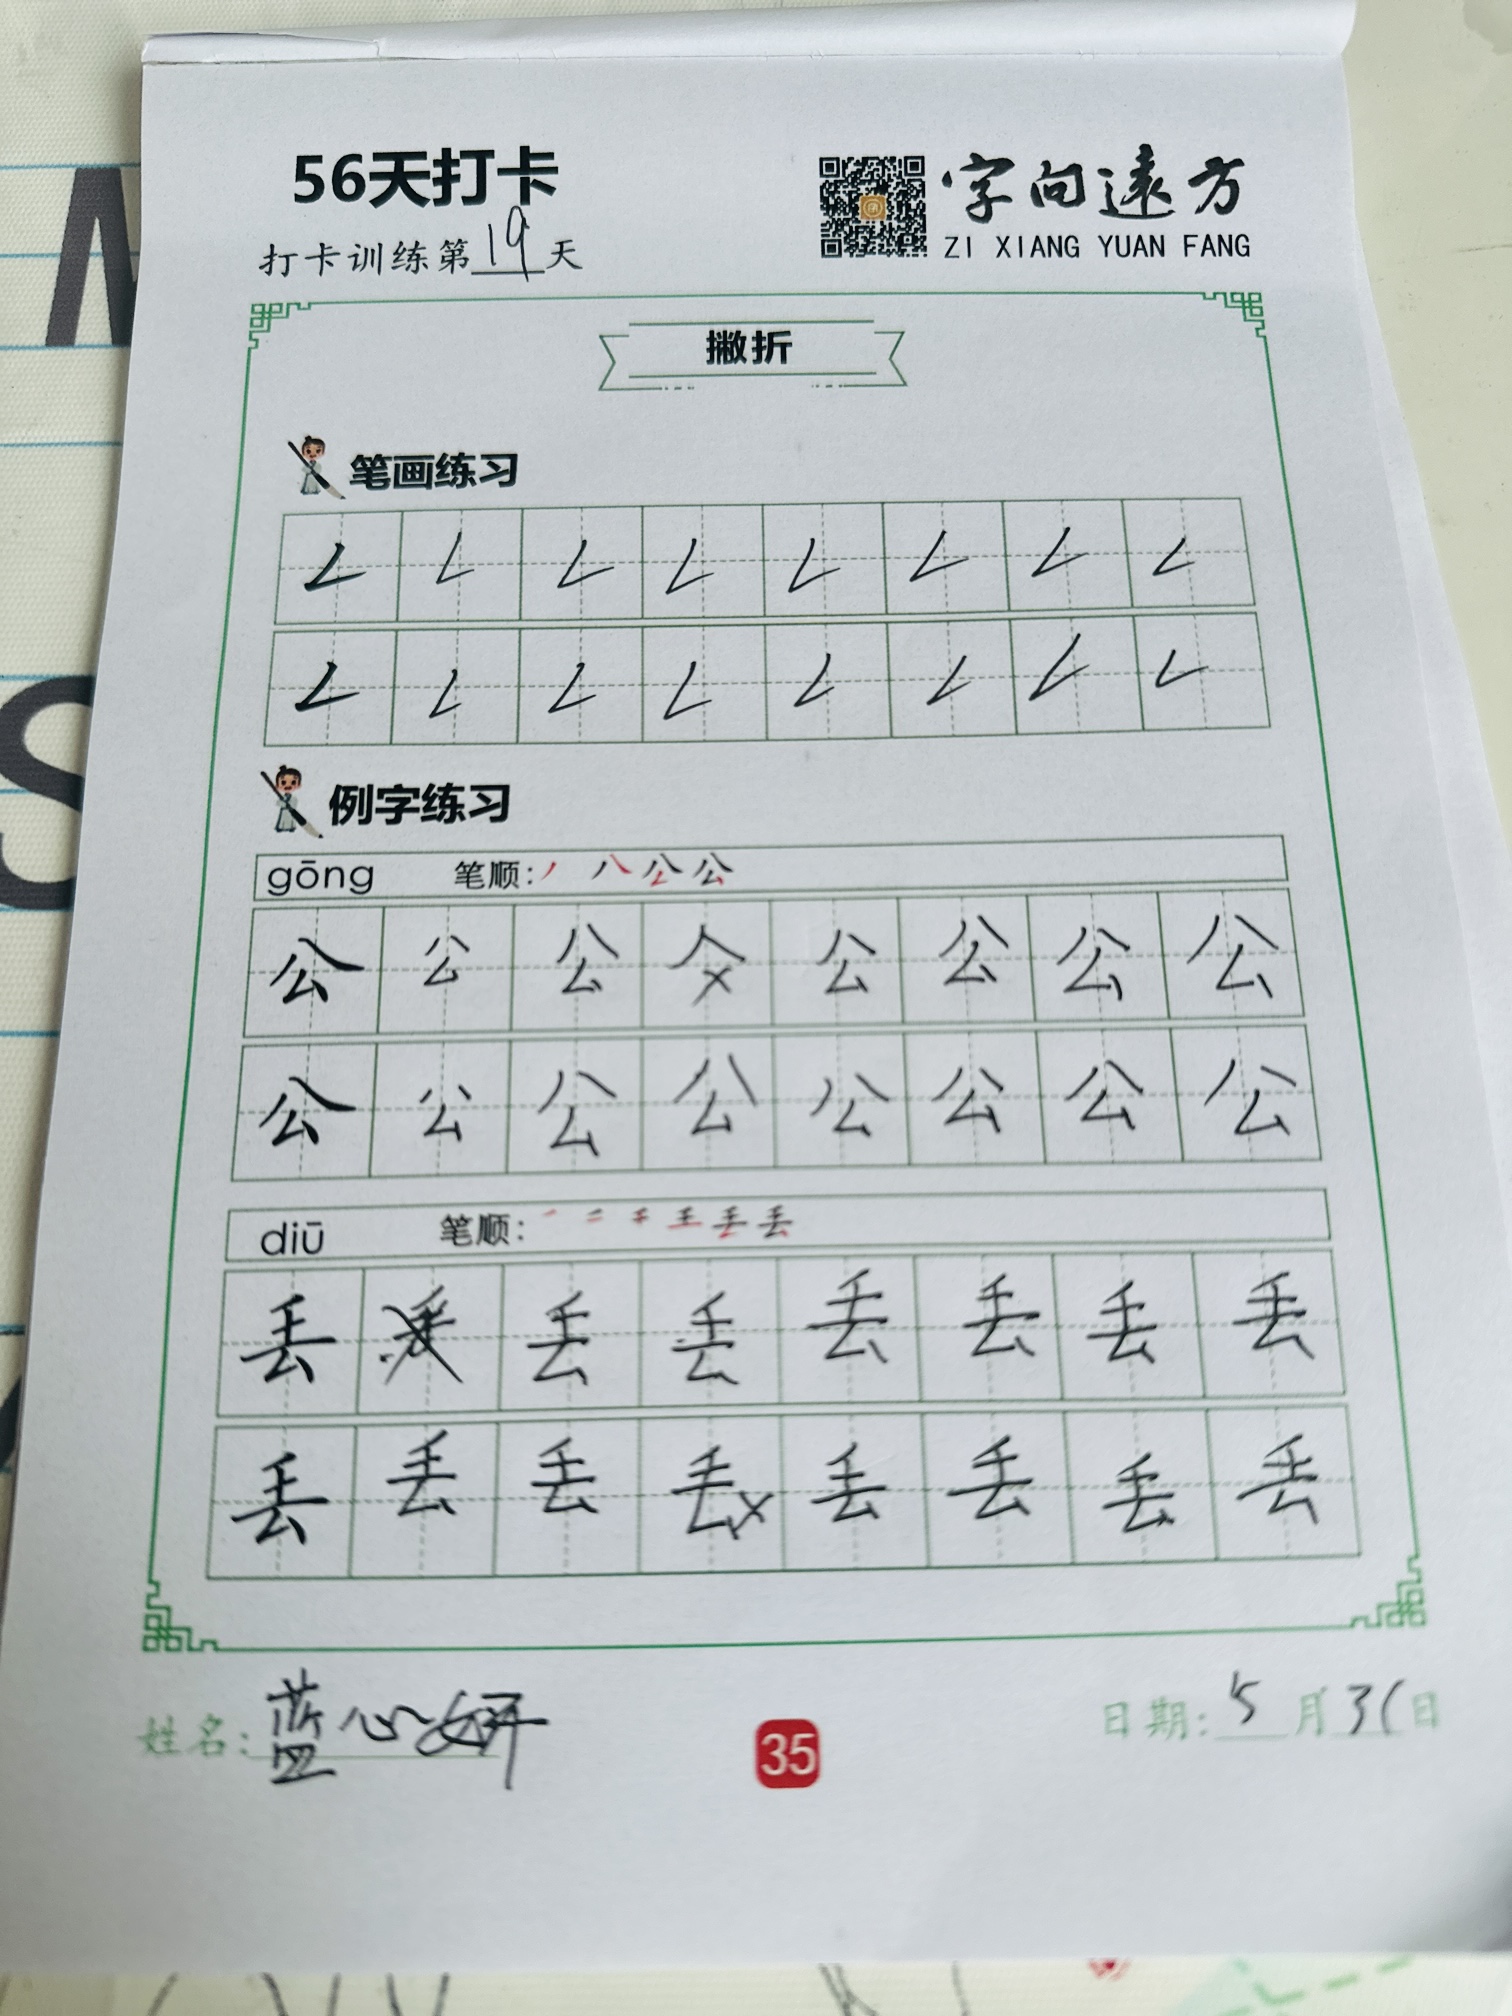 56天打卡
打卡训练第19天
字向遠方
ZI XIANG YUAN FANG
撇折
笔画练习
例字练习
gōng 笔顺:
公 公 公 公 公 公 公
公 公 公 公 公 公 公 公
diū 笔顺:
丢 丢 丢 丢 丢 丢 丢
丢 丢 丢 丢 丢 丢 丢 丢
姓名: 蓝心妍
35
日期: 5月31日